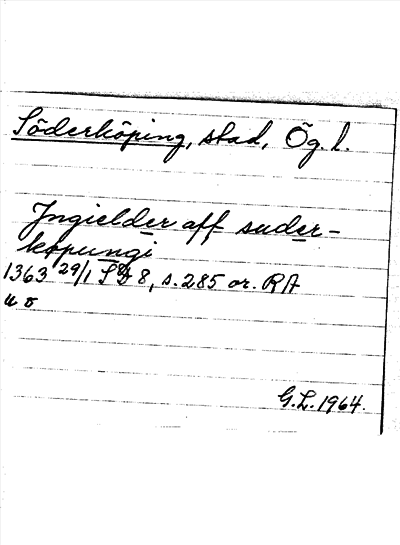 Söderköping, stad, Ög. l.
Jngielder aff suder-
köpungi
1363 29/1 SD 8, s. 285 or. RA
u ö
G.L. 1964.